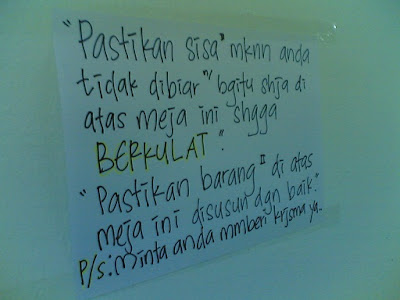 "Pastikan sisa" mknn anda
tidak dibiar"/ bgitu shja di
atas meja ini shgga
BERKULAT".
"Pastikan barang" di atas
meja ini disusun dgn baik."
P/s: Minta anda mmberi krjsma ya.